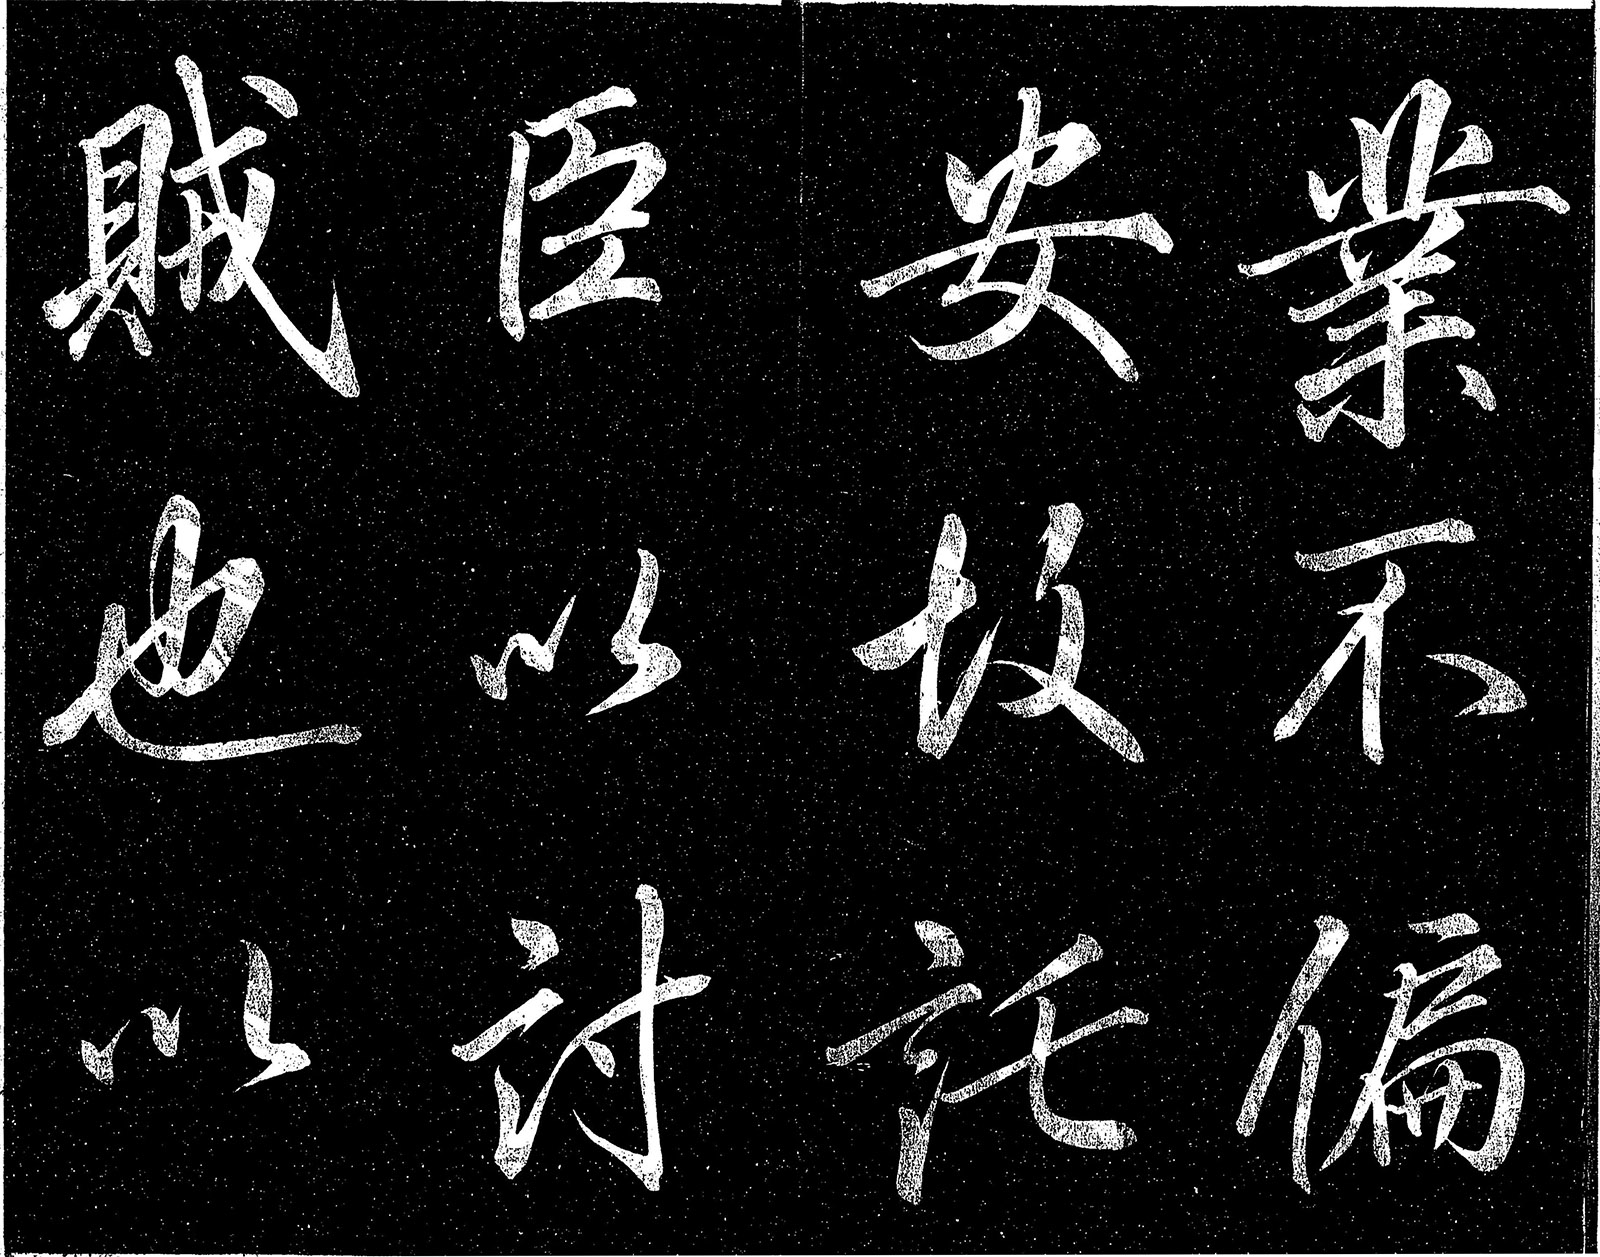 業不偏
安故託
臣以討
賊也以